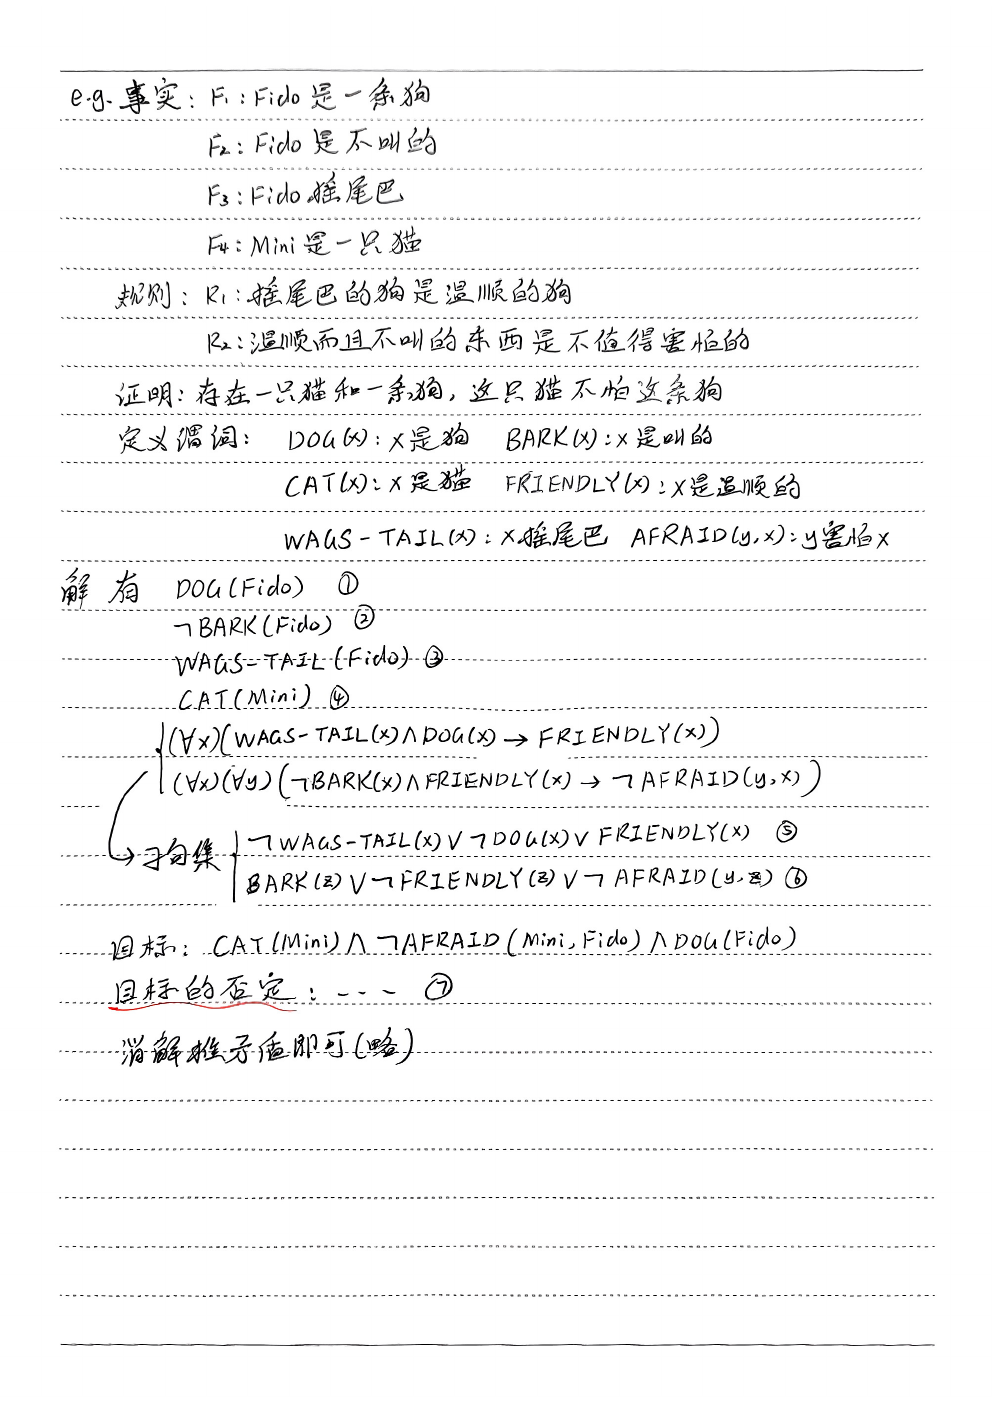 e.g. 事实: F₁: Fido 是一条狗
F₂: Fido 是不叫的
F₃: Fido 摇尾巴
F₄: Mini 是一只猫
规则: R₁: 摇尾巴的狗是温顺的狗
R₂: 温顺而且不叫的东西是不值得害怕的
证明: 存在一只猫和一条狗, 这只猫不怕这条狗
定义谓词: DOG(x): x是狗 BARK(x): x是叫的
CAT(x): x是猫 FRIENDLY(x): x是温顺的
WAGS-TAIL(x): x摇尾巴 AFRAID(y,x): y害怕x
解 有 DOG(Fido) ①
¬BARK(Fido) ②
WAGS-TAIL(Fido) ③
CAT(Mini) ④
(∀x)(WAGS-TAIL(x)∧DOG(x)→FRIENDLY(x))
(∀x)(∀y)(¬BARK(x)∧FRIENDLY(x)→¬AFRAID(y,x))
子句集 ¬WAGS-TAIL(x)∨¬DOG(x)∨FRIENDLY(x) ⑤
BARK(z)∨¬FRIENDLY(z)∨¬AFRAID(y,z) ⑥
目标: CAT(Mini)∧¬AFRAID(Mini,Fido)∧DOG(Fido)
目标的否定: --- ⑦
消解推矛盾即可(略)